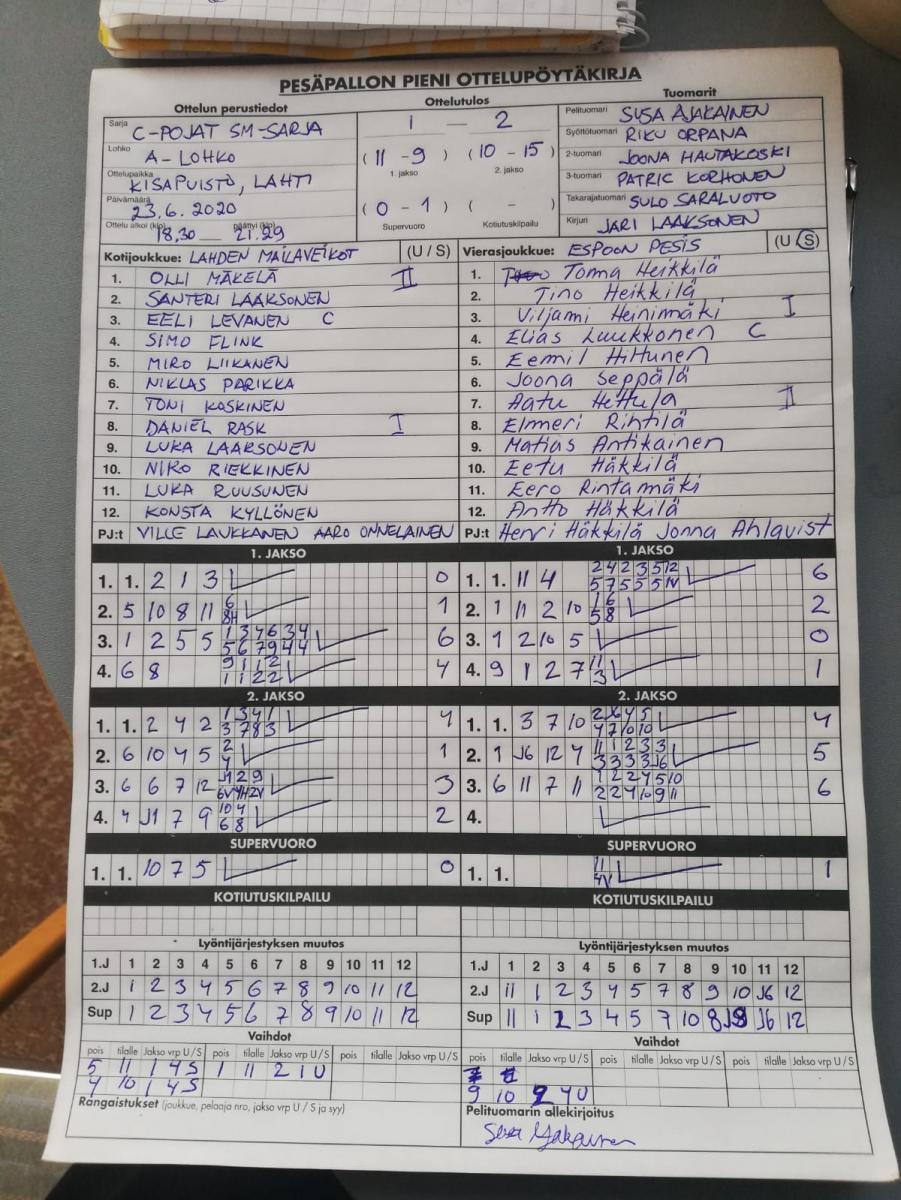 PESÄPALLON PIENI OTTELUPÖYTÄKIRJA
Ottelun perustiedot Ottelutulos Tuomarit
Sarja C-POJAT SM-SARJA 1 – 2 Pelituomari SUSA AJAKAINEN
Lohko A-LOHKO (11 - 9) (10 - 15) Syöttötuomari RIKU ORPANA
1. jakso 2. jakso 2-tuomari JOONA HAUTAKOSKI
Ottelupaikka KISAPUISTO, LAHTI 3-tuomari PATRIC KORHONEN
Päivämäärä 23.6. 2020 (0 - 1) ( - ) Takarajatuomari SULO SARALUOTO
Ottelu alkoi (klo) 18,30 päättyi (klo) 21.29 Supervuoro Kotiutuskilpailu Kirjuri JARI LAAKSONEN
Kotijoukkue: LAHDEN MAILAVEIKOT (U / S) Vierasjoukkue: ESPOON PESIS (U / S)
1. OLLI MÄKELÄ II 1. Toma Heikkilä
2. SANTERI LAAKSONEN 2. Tino Heikkilä
3. EELI LEVANEN C 3. Viljami Heinimäki I
4. SIMO FLINK 4. Elias Luukkonen C
5. MIRO LIIKANEN 5. Eemil Hiltunen
6. NIKLAS PARIKKA 6. Joona Seppälä
7. TONI KOSKINEN 7. Aatu Hettula II
8. DANIEL RASK I 8. Elmeri Rihtilä
9. LUKA LAAKSONEN 9. Matias Antikainen
10. NIKO RIEKKINEN 10. Eetu Häkkilä
11. LUKA RUUSUNEN 11. Eero Rintamäki
12. KONSTA KYLLÖNEN 12. Antto Häkkilä
PJ:t VILLE LAUKKANEN AARO ONNELAINEN PJ:t Henri Häkkilä Jonna Ahlqvist
1. JAKSO 1. JAKSO
1. 1. 2 1 3 0 1. 1. 11 4 2 4 2 3 5 12 6
5 7 5 5 5 1V
2. 5 10 8 11 6 1 2. 1 11 2 10 1 6 2
8H 5 8
3. 1 2 5 5 1 3 4 6 3 4 6 3. 1 2 10 5 0
5 6 7 9 4 4
4. 6 8 9 1 1 2 4 4. 9 1 2 7 11 1
1 1 2 2 3
2. JAKSO 2. JAKSO
1. 1. 2 4 2 1 3 4 1 4 1. 1. 3 7 10 2 6 4 5 4
3 7 8 3 4 7 10 10
2. 6 10 4 5 2 1 2. 1 J6 12 4 11 1 2 3 3 5
4 3 3 3 3 J6
3. 6 6 7 12 J1 2 9 3 3. 6 11 7 11 1 2 2 4 5 10 6
6V 4H 2V 2 2 4 10 9 11
4. 4 J1 7 9 10 4 2 4.
6 8
SUPERVUORO SUPERVUORO
1. 1. 10 7 5 0 1. 1. 11 1
4V
KOTIUTUSKILPAILU KOTIUTUSKILPAILU
Lyöntijärjestyksen muutos Lyöntijärjestyksen muutos
1.J 1 2 3 4 5 6 7 8 9 10 11 12 1.J 1 2 3 4 5 6 7 8 9 10 11 12
2.J 1 2 3 4 5 6 7 8 9 10 11 12 2.J 11 1 2 3 4 5 7 8 9 10 J6 12
Sup 1 2 3 4 5 6 7 8 9 10 11 12 Sup 11 1 2 3 4 5 7 10 8 J9 J6 12
Vaihdot Vaihdot
pois tilalle Jakso vrp U / S pois tilalle Jakso vrp U / S pois tilalle Jakso vrp U / S pois tilalle Jakso vrp U / S pois tilalle Jakso vrp U / S pois tilalle Jakso vrp U / S
5 11 1 4 S 1 11 2 1 U
4 10 1 4 S 9 10 2 4 U
Rangaistukset (joukkue, pelaaja nro, jakso vrp U / S ja syy) Pelituomarin allekirjoitus
Susa Ajakainen